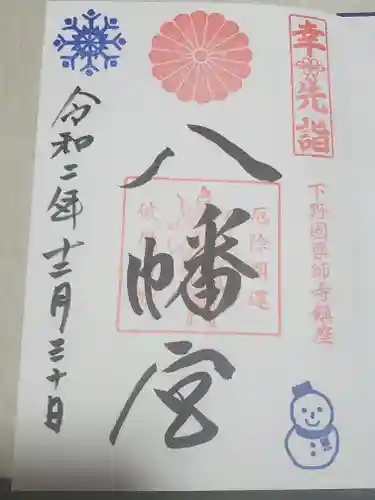 幸先詣
下野國薬師寺鎮座
八幡宮
厄除開運
破
令和二年十二月三十日